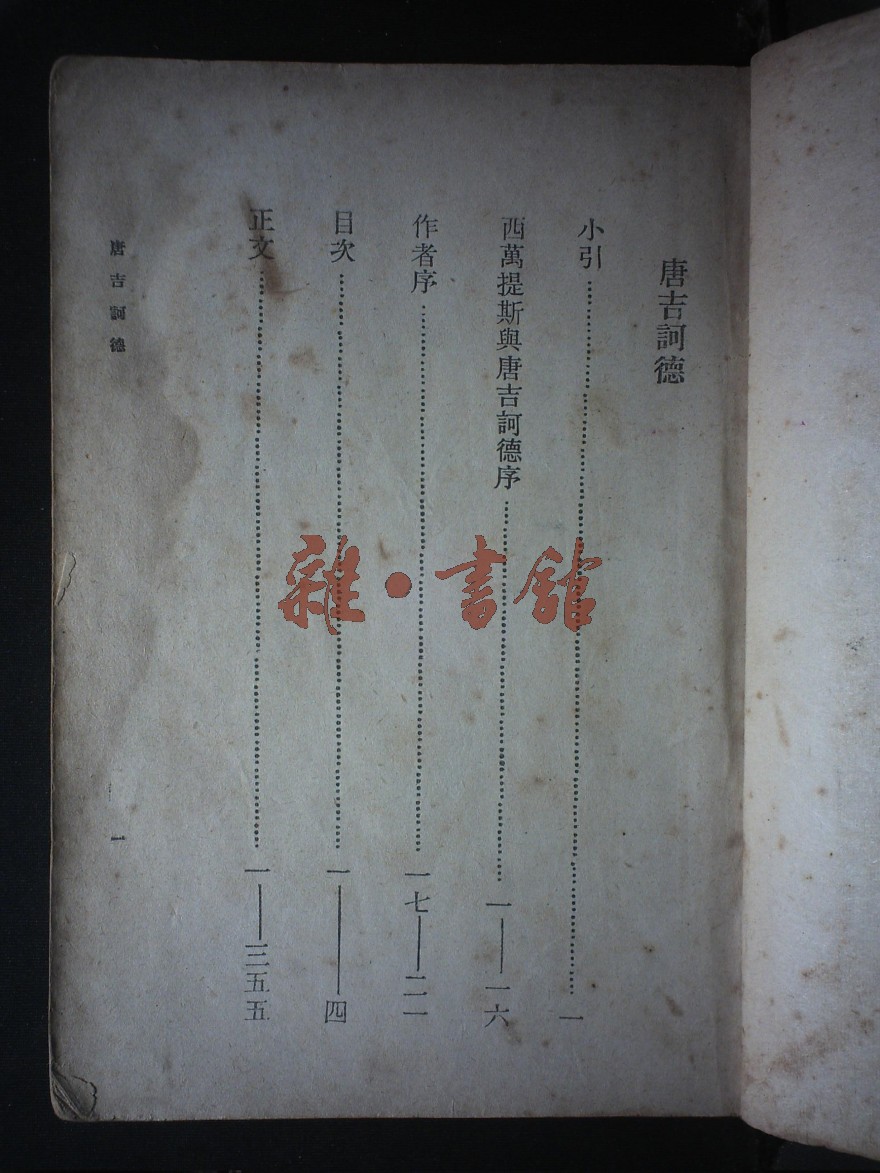 唐吉訶德
小引……………………一
西萬提斯與唐吉訶德序……………………一——一六
作者序……………………一七——二一
目次……………………一——四
正文……………………一——三五五
唐吉訶德
一
雜·書館